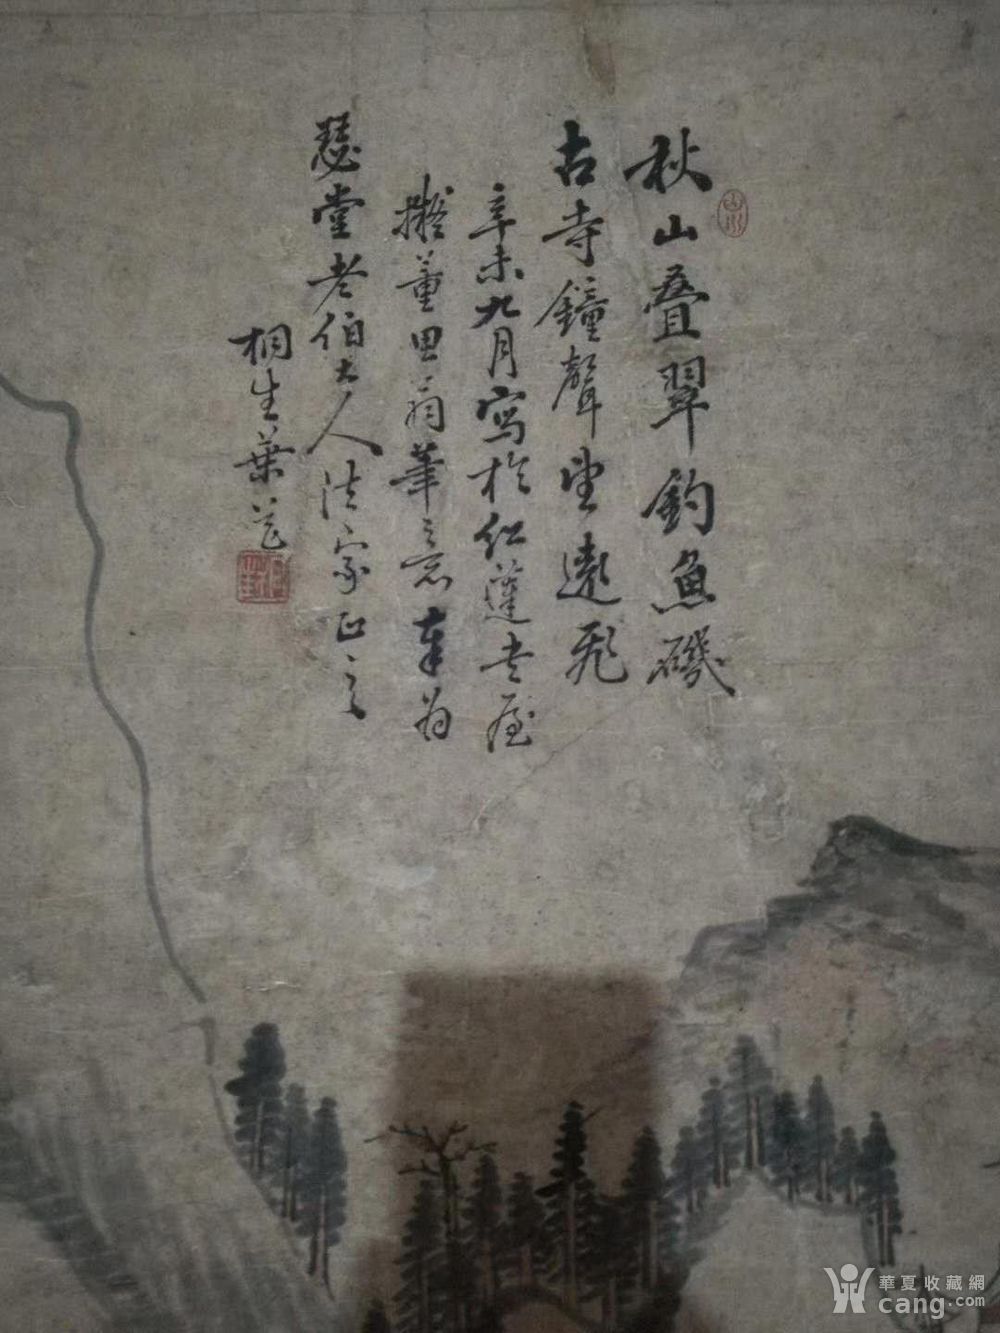 秋山叠翠钓魚磯
古寺鐘聲雲遶飛
辛未九月寫於仁蓮書屋
擬董思翁筆之意奉為
瑟堂老伯大人法家正之
桐生葉芒
華夏收藏網
cang.com